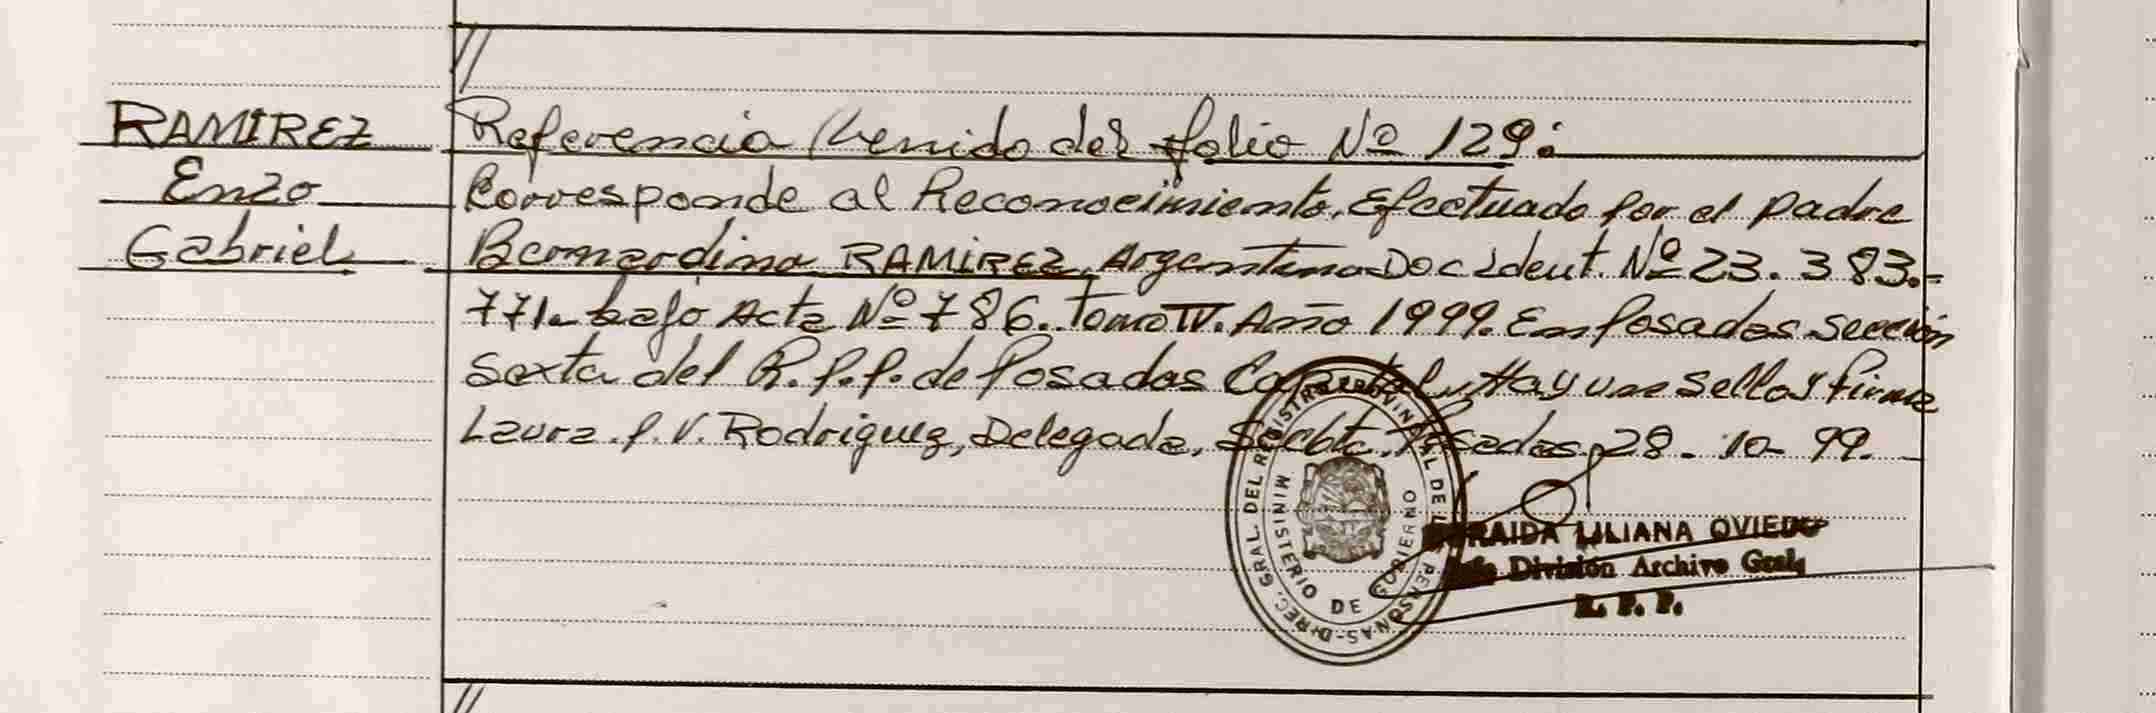 //
RAMIREZ
Enzo
Gabriel
Referencia Venido del folio Nº 129:
Corresponde al Reconocimiento, Efectuado por el padre
Bernardino RAMIREZ, Argentino Doc Ident. Nº 23.383.-
771- bajo Acta Nº 786. Tomo IV. Año 1999. En Posadas Sección
Sexta del R.P.P. de Posadas Capital, Hay un sello y firma
Laura. P. V. Rodriguez, Delegada, Posadas, 28-10-99.
DIREC. GRAL. DEL REGISTRO PROVINCIAL DE PERSONAS-
MINISTERIO DE GOBIERNO
LILIANA OVIEDO
División Archivo Gral.
R. P. P.
//